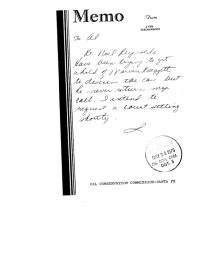 Memo
From
To Al
Re: Noel Reynolds
Have been trying to get
ahold of Marvin
to discuss the case but
he never returns my
call. I intend to
request a court setting
shortly.
OIL CONSERVATION COMMISSION-SANTA FE